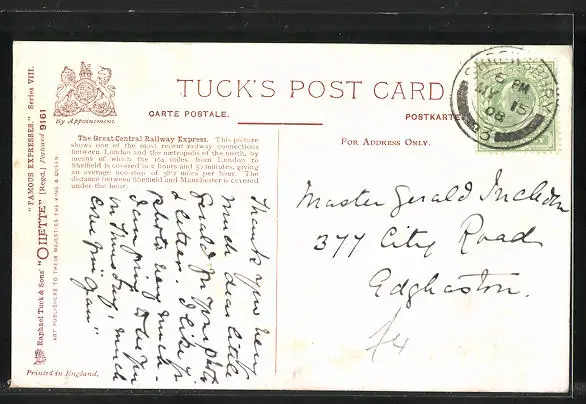 "FAMOUS EXPRESSES." Series VIII.
Raphael Tuck & Sons' "OILETTE" [Regd.] Postcard 9161
ART PUBLISHERS TO THEIR MAJESTIES THE KING & QUEEN.
By Appointment.
TUCK'S POST CARD
CARTE POSTALE.
POSTKARTE
The Great Central Railway Express. This picture
shows one of the most recent railway connections
between London and the metropolis of the north, by
means of which the 164 miles from London to
Sheffield is covered in 2 hours and 50 minutes, giving
an average non-stop of 58⅓ miles per hour. The
distance between Sheffield and Manchester is covered
under the hour.
FOR ADDRESS ONLY.
SHREWSBURY
6 PM
MY 15
08
Master Gerald Incledon
377 City Road
Edgbaston.
Thank you very
much dear little
Gerald for your photo
& letter. I like yr
photo very much.
I am going to see you
on Thursday, much
love fm "Gran"
Printed in England.
/4